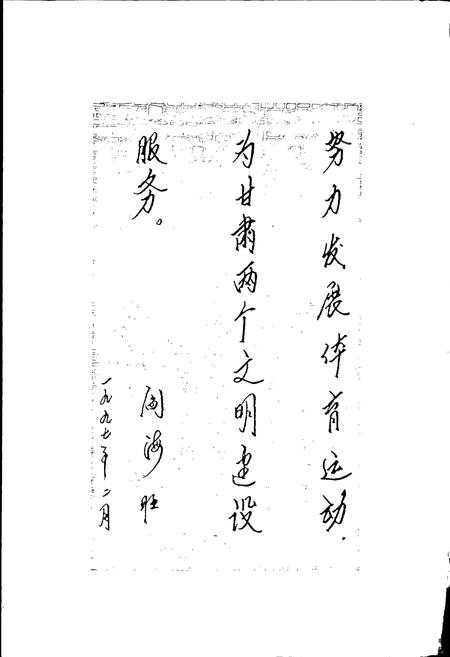 努力发展体育运动.
为甘肃两个文明建设
服务。
海旺
一九九七年二月